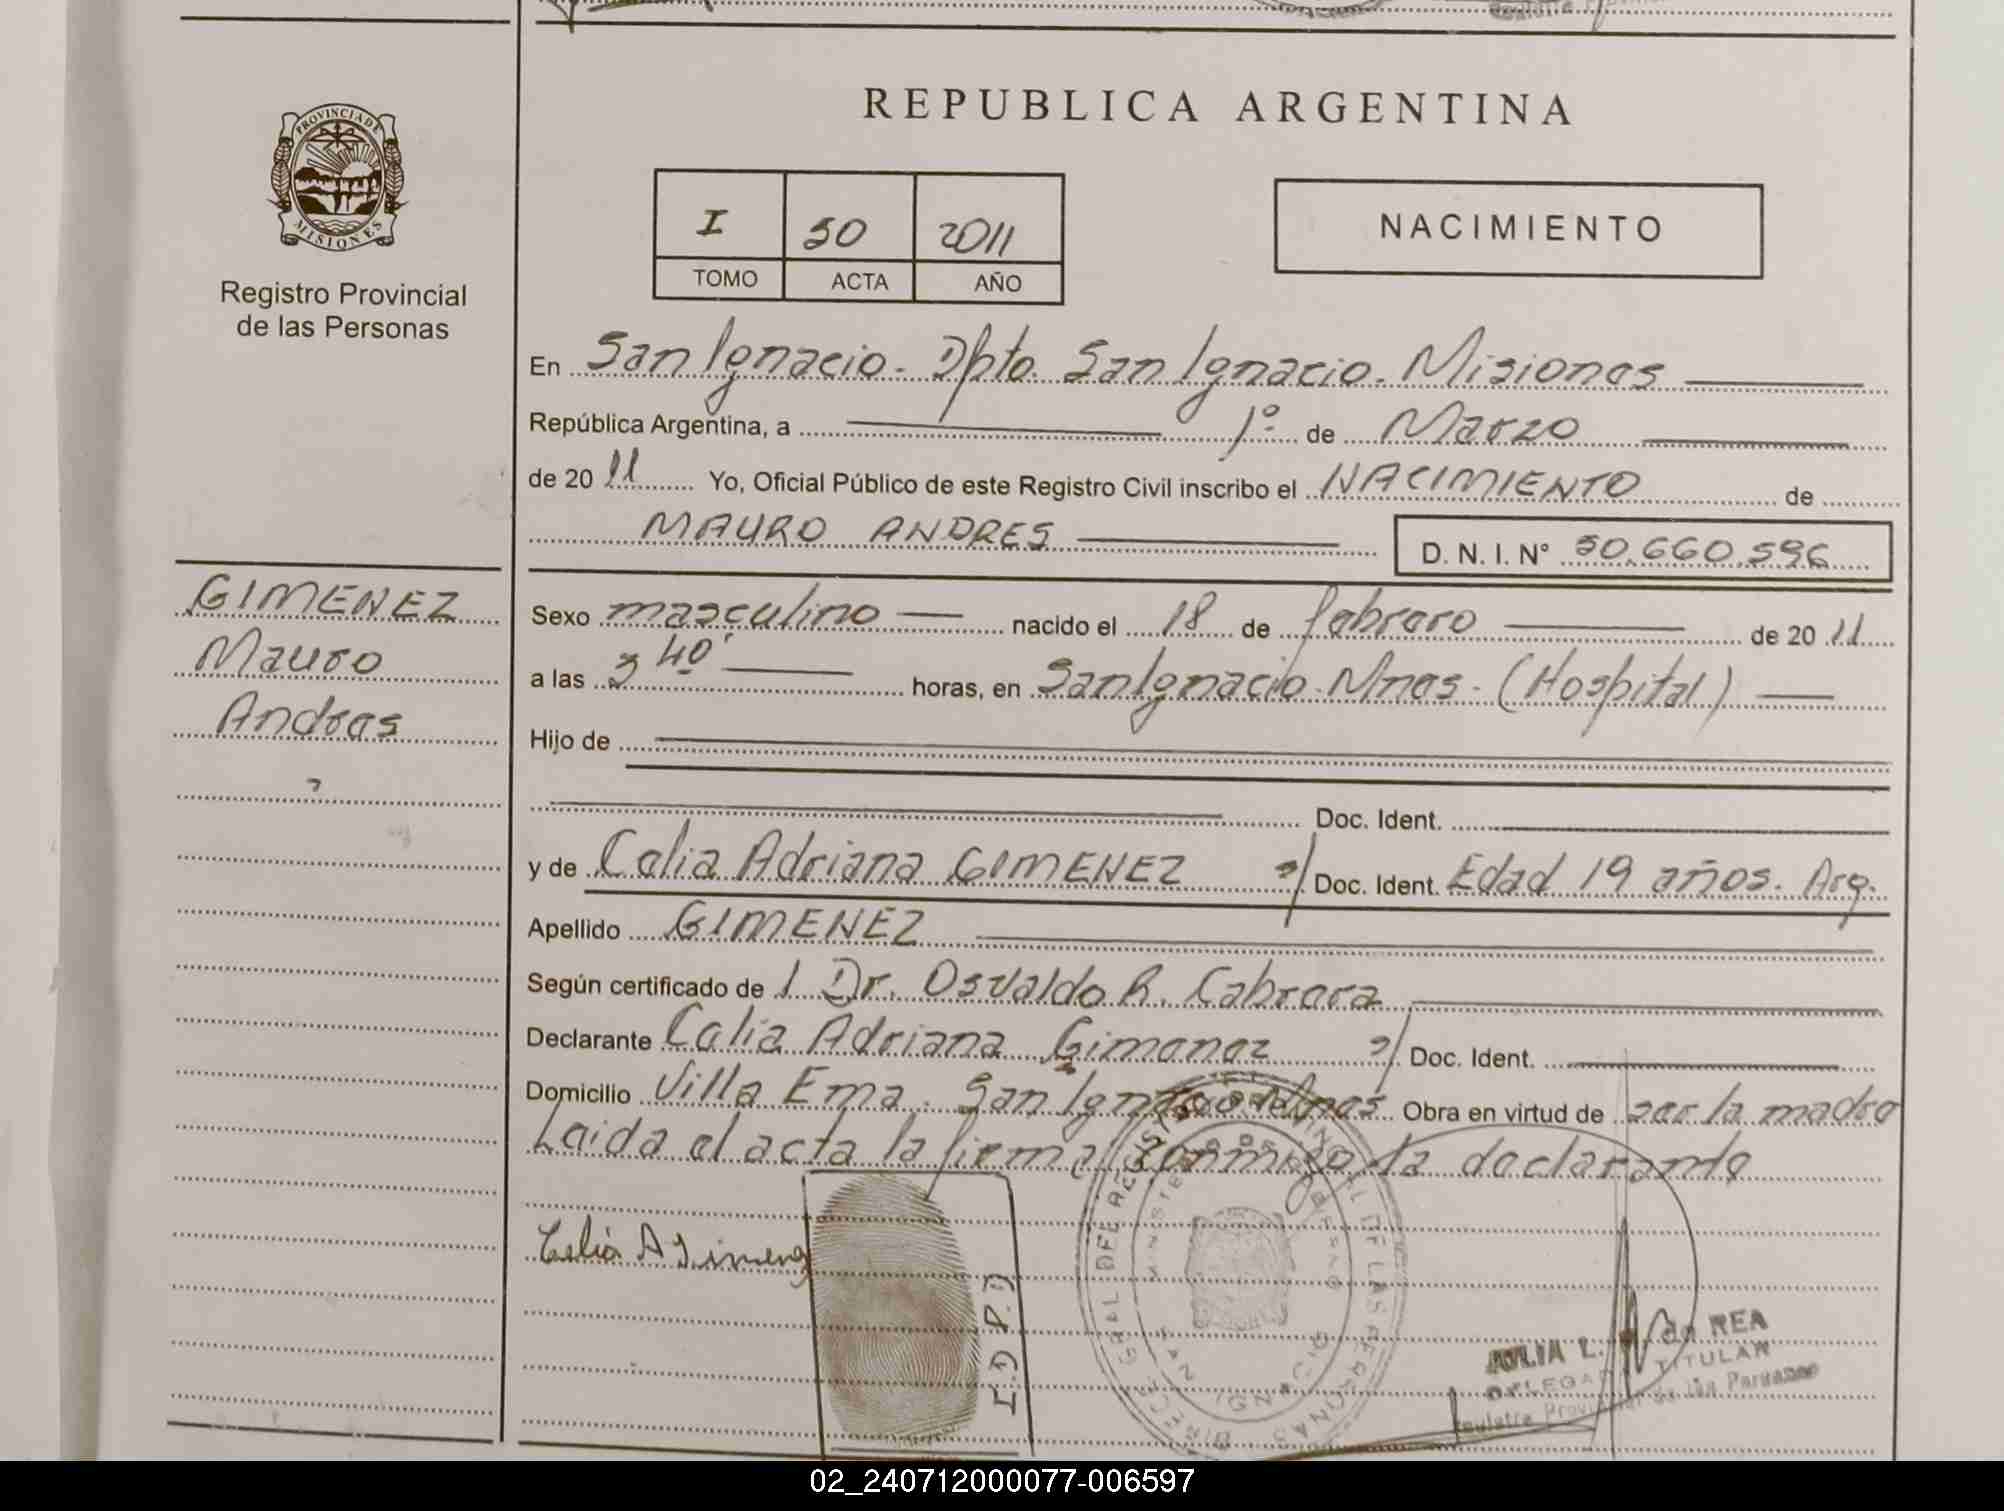 PROVINCIA DE
MISIONES
Registro Provincial
de las Personas
GIMENEZ
Mauro
Andres
REPUBLICA ARGENTINA
I 50 2011
TOMO ACTA AÑO
NACIMIENTO
En San Ignacio. Dpto. San Ignacio. Misiones
República Argentina, a 1º de Marzo
de 20 11 Yo, Oficial Público de este Registro Civil inscribo el NACIMIENTO de
MAURO ANDRES D. N. I. Nº 50.660.596
Sexo masculino nacido el 18 de febrero de 20 11
a las 3 40' horas, en San Ignacio. Mnes. (Hospital)
Hijo de
Doc. Ident.
y de Celia Adriana GIMENEZ Doc. Ident. Edad 19 años. Arg.
Apellido GIMENEZ
Según certificado de l Dr. Osvaldo R. Cabrera
Declarante Celia Adriana Gimenez Doc. Ident.
Domicilio Villa Ema. San Ignacio Mnes Obra en virtud de ser la madre
Leida el acta la firma conmigo la declarante
Celia A Gimenez
I.D.P.D
JULIA L. de REA
DELEGADA TITULAR
02_240712000077-006597